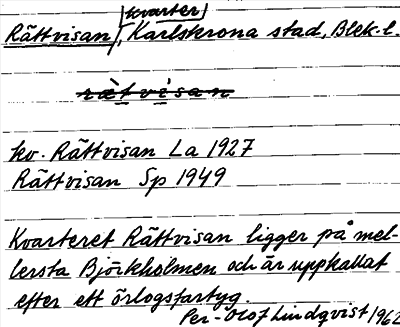 kvarter
Rättvisan, Karlskrona stad, Blek. l.
rättvisan
kv. Rättvisan La 1927
Rättvisan Sp 1949
Kvarteret Rättvisan ligger på mel-
lersta Björkholmen och är uppkallat
efter ett örlogsfartyg.
Per-Olof Lindqvist 1962